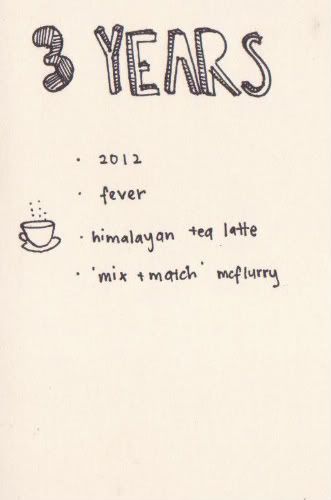 3 YEARS
· 2012
· fever
· himalayan tea latte
· 'mix + match' mcflurry